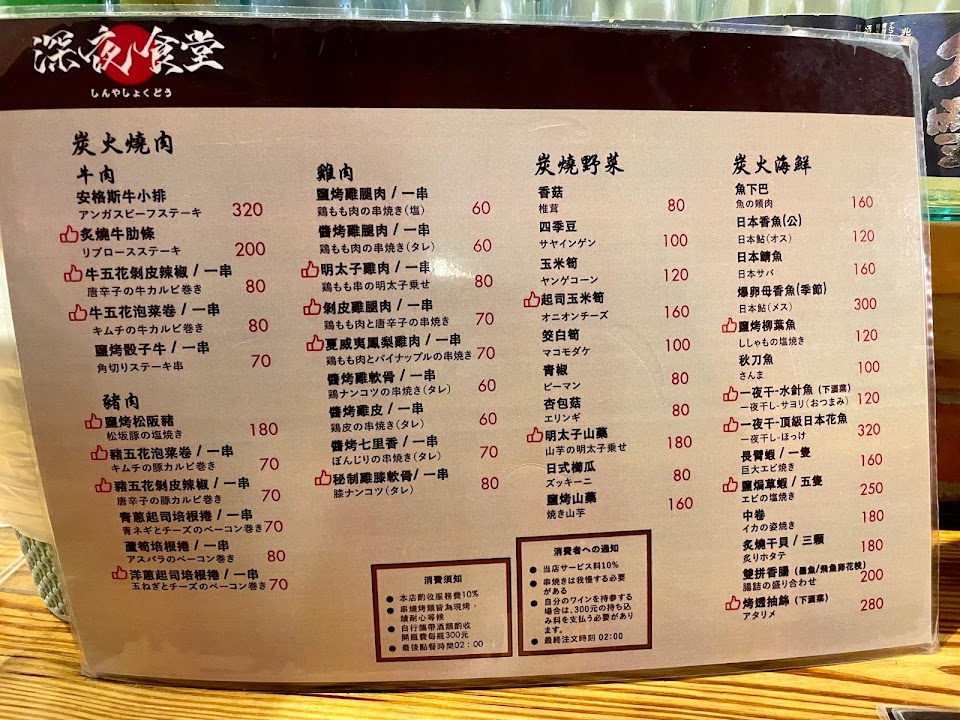 深夜食堂
しんやしょくどう
炭火燒肉
牛肉
安格斯牛小排
アンガスビーフステーキ 320
炙燒牛肋條
リブロースステーキ 200
牛五花剝皮辣椒 / 一串
唐辛子の牛カルビ巻き 80
牛五花泡菜卷 / 一串
キムチの牛カルビ巻き 80
鹽烤骰子牛 / 一串
角切りステーキ串 70
豬肉
鹽烤松阪豬
松坂豚の塩焼き 180
豬五花泡菜卷 / 一串
キムチの豚カルビ巻き 70
豬五花剝皮辣椒 / 一串
唐辛子の豚カルビ巻き 70
青蔥起司培根捲 / 一串
青ネギとチーズのベーコン巻き 70
蘆筍培根捲 / 一串
アスパラのベーコン巻き 80
洋蔥起司培根捲 / 一串
玉ねぎとチーズのベーコン巻き 70
雞肉
鹽烤雞腿肉 / 一串
鶏もも肉の串焼き(塩) 60
醬烤雞腿肉 / 一串
鶏もも肉の串焼き(タレ) 60
明太子雞肉 / 一串
鶏もも串の明太子乗せ 80
剝皮雞腿肉 / 一串
鶏もも肉と唐辛子の串焼き 70
夏威夷鳳梨雞肉 / 一串
鶏もも肉とパイナップルの串焼き 70
醬烤雞軟骨 / 一串
鶏ナンコツの串焼き(タレ) 60
醬烤雞皮 / 一串
鶏皮の串焼き(タレ) 60
醬烤七里香 / 一串
ぼんじりの串焼き(タレ) 70
秘制雞膝軟骨 / 一串
膝ナンコツ(タレ) 80
炭燒野菜
香菇
椎茸 80
四季豆
サヤインゲン 100
玉米筍
ヤンゲコーン 120
起司玉米筍
オニオンチーズ 160
筊白筍
マコモダケ 100
青椒
ピーマン 80
杏包菇
エリンギ 80
明太子山藥
山芋の明太子乗せ 180
日式櫛瓜
ズッキーニ 80
鹽烤山藥
焼き山芋 160
炭火海鮮
魚下巴
魚の頬肉 160
日本香魚(公)
日本鮎(オス) 120
日本鯖魚
日本サバ 160
爆卵母香魚(季節)
日本鮎(メス) 300
鹽烤柳葉魚
ししゃもの塩焼き 120
秋刀魚
さんま 100
一夜干-水針魚 (下酒菜)
一夜干し-サヨリ(おつまみ) 120
一夜干-頂級日本花魚
一夜干し-ほっけ 320
長臂蝦 / 一隻
巨大エビ焼き 160
鹽焗草蝦 / 五隻
エビの塩焼き 250
中卷
イカの姿焼き 180
炙燒干貝 / 三顆
炙りホタテ 180
雙拼香腸 (墨魚/飛魚卵花枝)
腸詰の盛り合わせ 200
烤透抽絲 (下酒菜)
アタリメ 280
消費須知
● 本店酌收服務費10%
● 串燒烤類皆為現烤，
請耐心等候
● 自行攜帶酒類酌收
開瓶費每瓶300元
● 最後點餐時間02：00
消費者への通知
● 当店サービス料10%
● 串焼きは我慢する必要
がある
● 自分のワインを持参する
場合は、300元の持ち込
み料を支払う必要があり
ます。
● 最終注文時刻 02:00